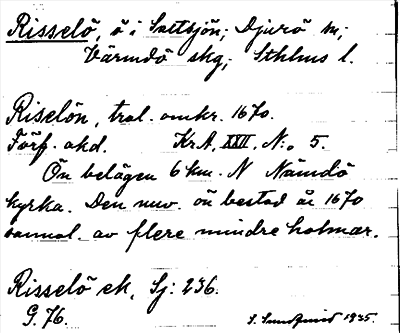 Risselö, ö i Saltsjön; Djurö sn;
Värmdö skg; Sthlms l.
Riselön, tral. omkr. 1670.
Förf. okd. Kr.A. XXII, N:o 5.
Ön belägen 6 km. N Nämdö
kyrka. Den nuv. ön bestod år 1670
sannol. av flere mindre holmar.
Risselö ek, Sj: 236.
G. 76. 1935